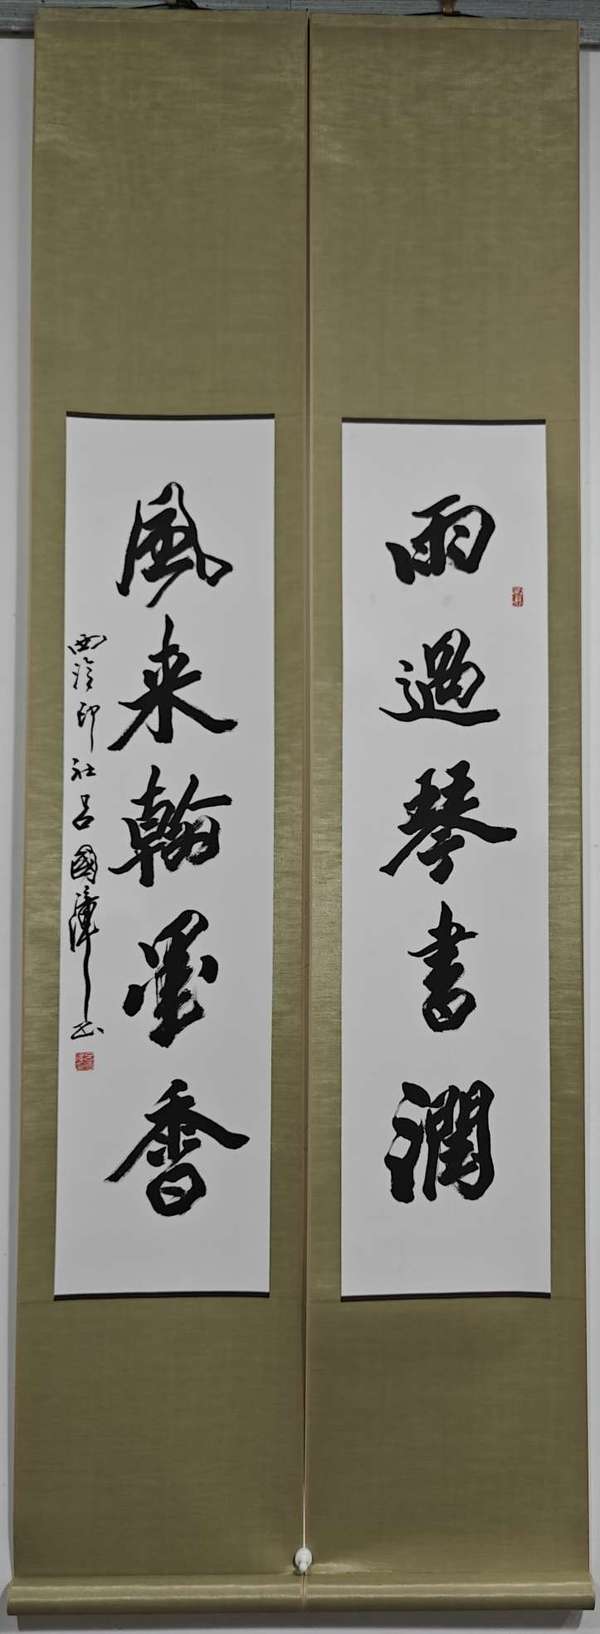 雨過琴書潤
風来翰墨香
西泠印社呂國璋書